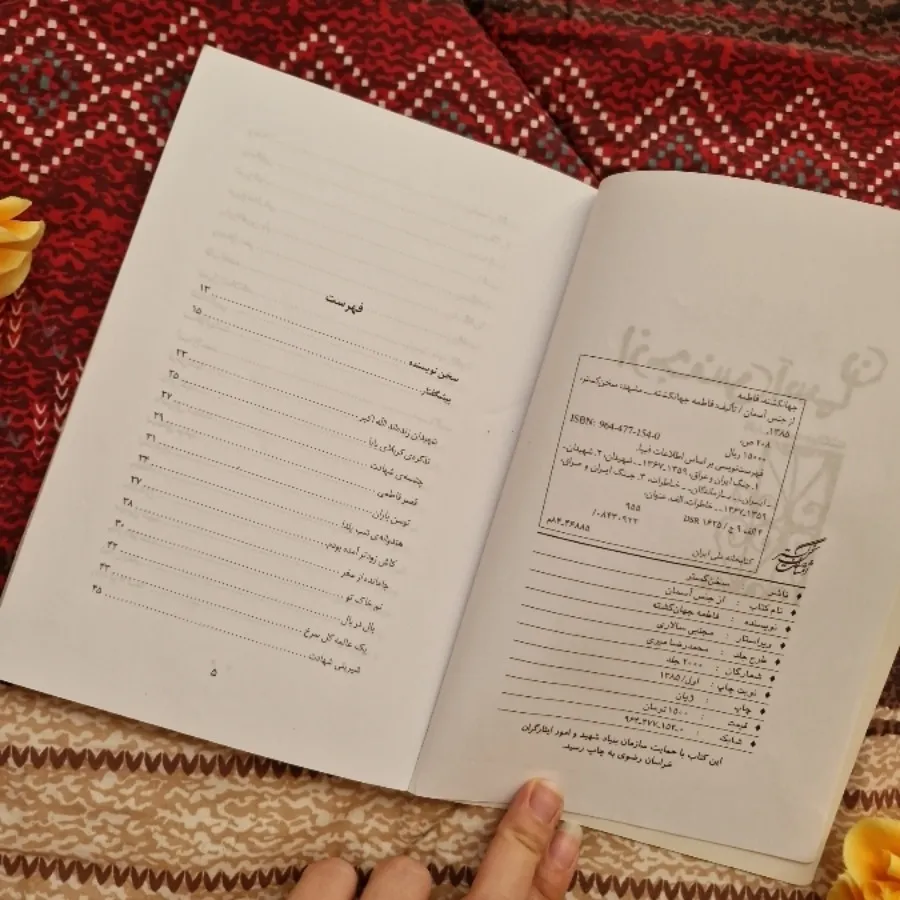 جهانگشته، فاطمه
از جنس آسمان / تألیف فاطمه جهانگشته._ مشهد: سخن‌گستر،
۱۳۸۵.
۲۰۸ ص.
ISBN: 964-477-154-0
۱۵۰۰۰ ریال
فهرست‌نویسی بر اساس اطلاعات فیپا.
۱. جنگ ایران و عراق، ۱۳۵۹-۱۳۶۷ -- شهیدان. ۲. شهیدان-
- ایران -- بازماندگان -- خاطرات. ۳. جنگ ایران و عراق،
۱۳۵۹-۱۳۶۷ -- خاطرات. الف. عنوان.
۹۵۵/۰۸۴۳۰۹۲۲
۴ الف ۹ ج / ۱۶۲۵ DSR
کتابخانه ملی ایران
م۸۴-۴۶۸۸۵
ناشر : سخن‌گستر
نام کتاب : از جنس آسمان
نویسنده : فاطمه جهان‌گشته
ویراستار : مجتبی سالاری
طرح جلد : محمدرضا میری
شمارگان : ۲۰۰۰ جلد
نوبت چاپ : اول/ ۱۳۸۵
چاپ : ژیان
قیمت : ۱۵۰۰ تومان
شابک : ۹۶۴-۴۷۷-۱۵۴-۰
این کتاب با حمایت سازمان بنیاد شهید و امور ایثارگران
خراسان رضوی به چاپ رسید.
فهرست
سخن نویسنده ۱۳
پیشگفتار ۱۵
شهیدان زنده‌اند الله اکبر ۲۳
تذکره‌ی کربلای بابا ۲۵
چشمه‌ی شهادت ۲۷
قصر فاطمی ۲۹
توسن باران ۳۱
هندوانه‌ی شب یلدا ۳۴
کاش زودتر آمده بودم ۳۷
جامانده از سفر ۳۸
نم خاک تو ۴۰
بال در بال ۴۲
یک عالمه گل سرخ ۴۳
شیرینی شهادت ۴۵
۵